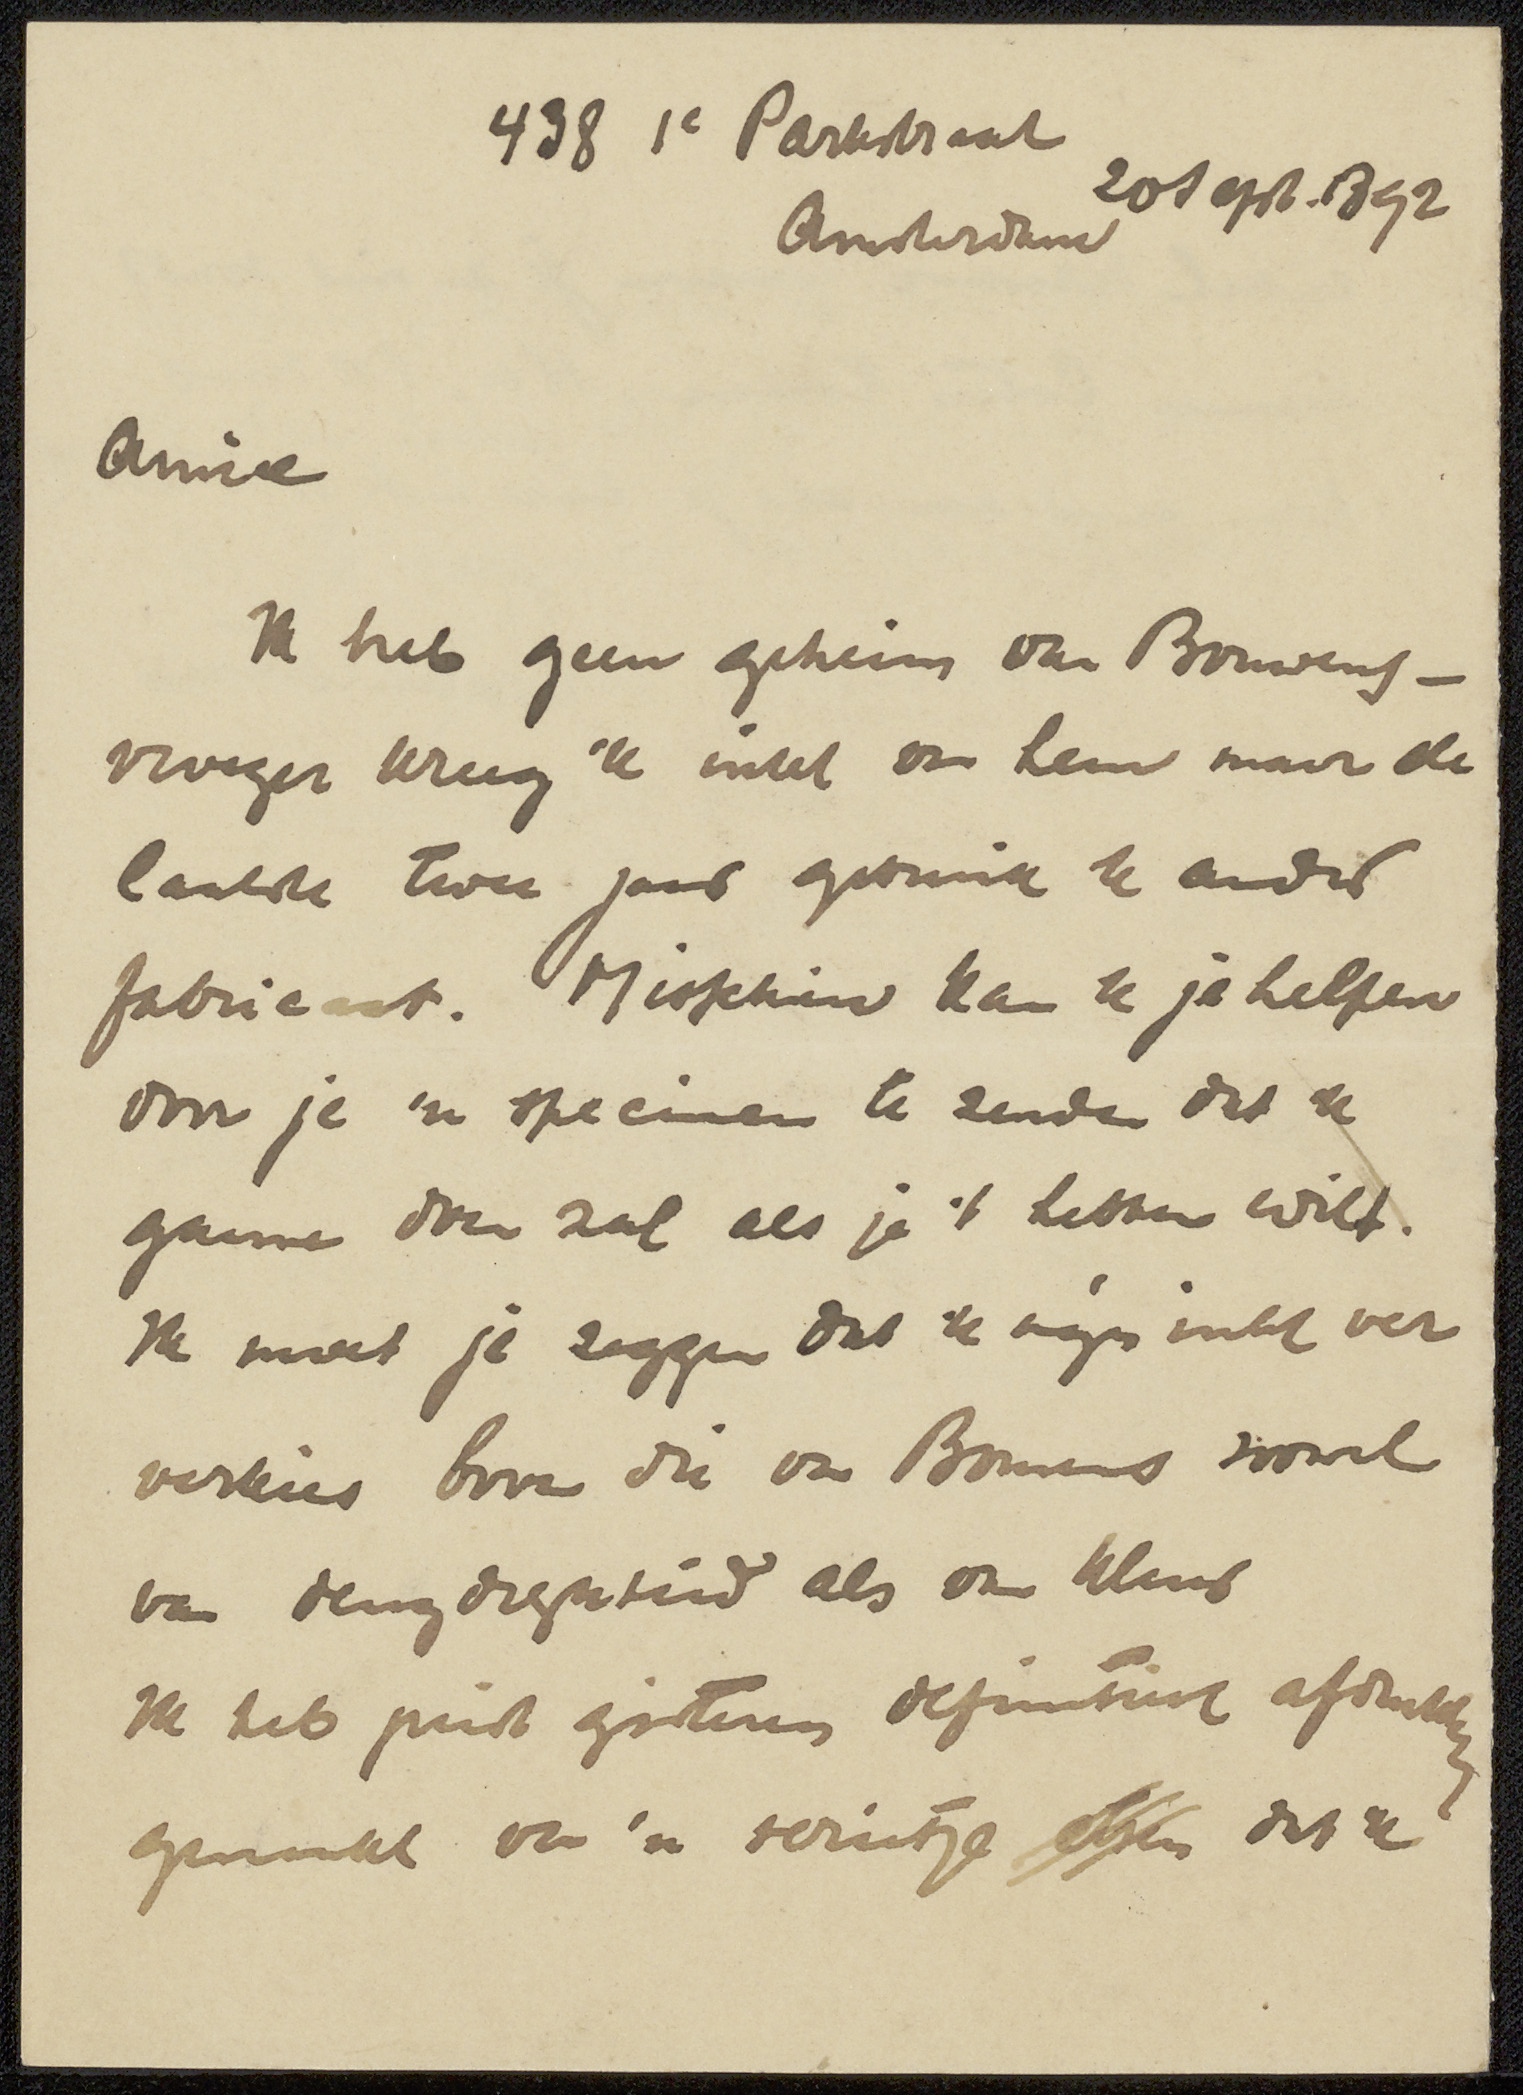 438 1e Parkstraat
20 Sept. 1892
Amsterdam
Amice
Ik heb geen geheim van Bouwens –
vroeger kreeg 'k inkt van hem maar de
laatste twee jaar gebruik 'k ander
fabricaat. Misschien kan 'k je helpen
door je 'n specimen te zenden dat 'k
gaarne doen zal als je 't hebben wilt.
Ik moet je zeggen dat 'k mijn inkt ver
verkies boven die van Bouwens zoowel
van deugdelijkheid als van kleur
Ik heb juist gisteren definitief afdrukken
gemaakt van 'n serietje etsen dat 'k